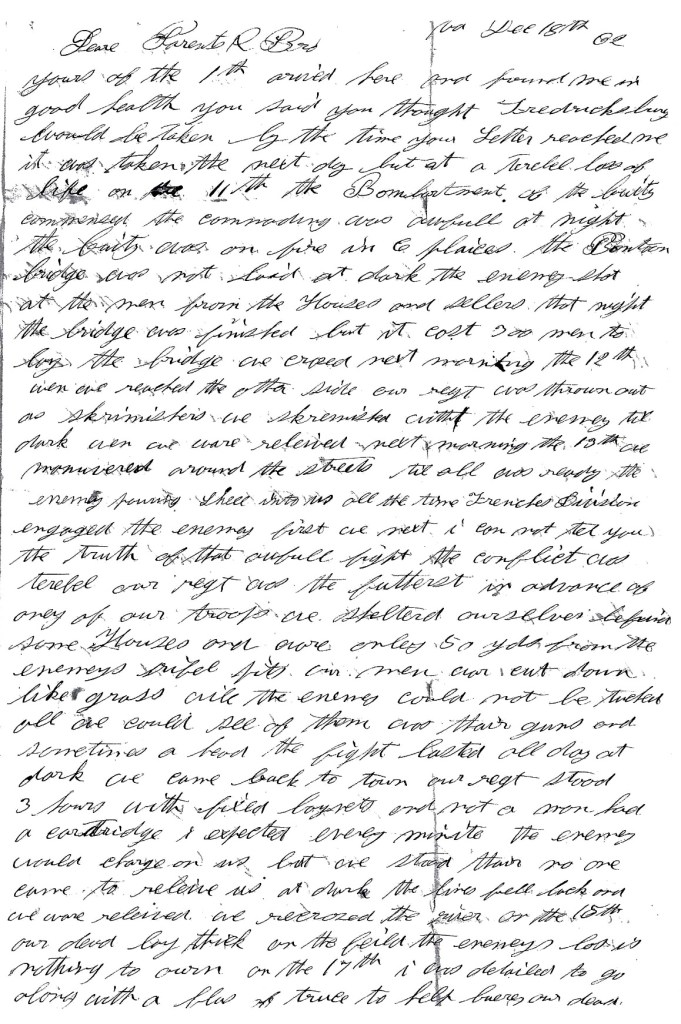 va Dec 18th 62
Dear Parents & Bros
yours of the 1th arived here and found me in
good health you said you thought Fredricksburg
would be taken by the time your Letter reached me
it was taken the next day but at a terebel loss of
life on the 11th the Bombartment of the caity
commensed the commading was awfull at night
the caity was on fire in 6 plaices the Pontoon
bridge was not laid at dark the enemy shot
at the men from the Houses and sellers that night
the bridge was finished but it cost 300 men to
lay the bridge we crosed next morning the 12th
wen we reached the other side our regt was thrown out
as skrimishers we skremished witht the enemey til
dark wen we ware releived next morning the 13th we
manuvered around the streets til all was ready the
enemey shell into us all the time Frenches Division
engaged the enemey first we next i can not tel you
the truth of that awfull fight the conflict was
terebel our regt was the futterst in advance of
aney of our troops we shelterd ourselves behind
some Houses and ware onley 50 yds from the
enemeys rifel pits our men war cut down
like grass wile the enemey could not be tuched
all we could see of them was thair guns and
sometimes a head the fight lasted all day at
dark we came back to town our regt stood
3 hours with fixed baynets and not a man had
a cartridge i expected everey minite the enemey
would charge on us but we stood thair no one
came to releive us at dark the fires fell back and
we ware releived we recrozed the river on the 15th
our dead lay thick on the feild the enemeys loss is
nothing to ourn on the 17th i was detailed to go
along with a flag of truce to help buerey our dead